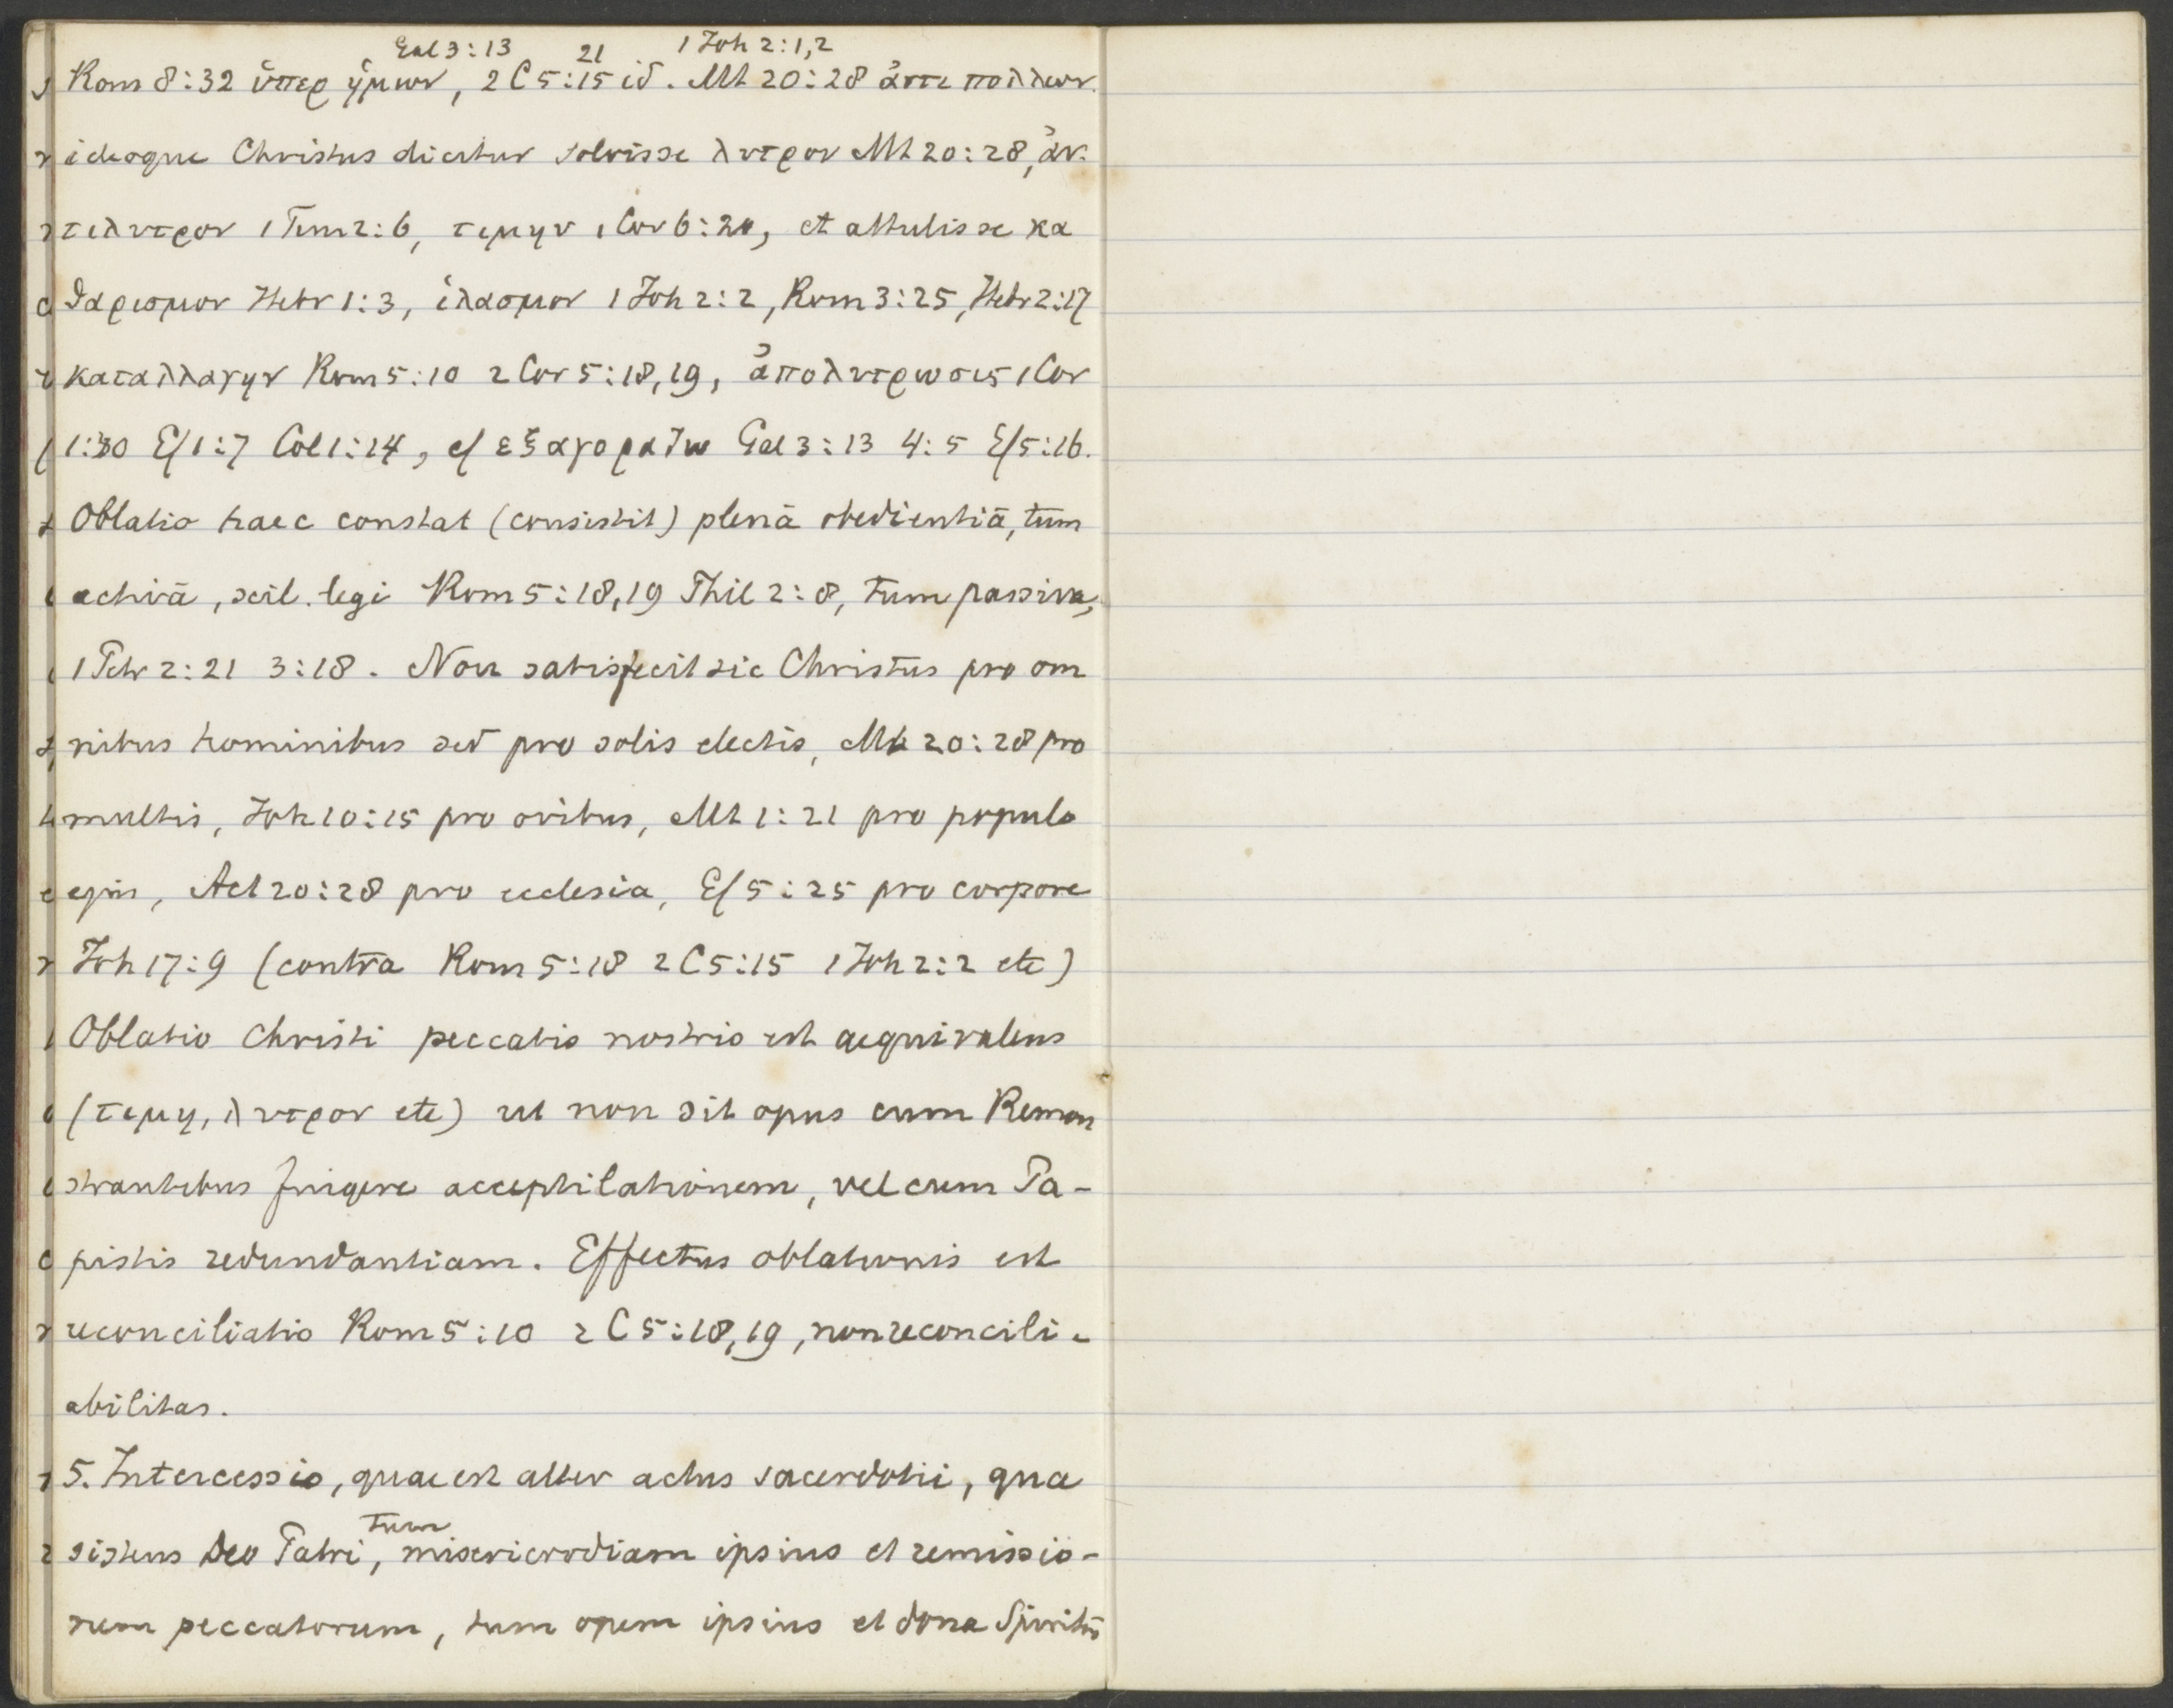 Gal 3:13 21 1 Joh 2:1,2
Rom 8:32 ὑπερ ἡμων, 2 C 5:15 id. Mt 20:28 ἀντι πολλων.
ideoque Christus dicitur solvisse λυτρον Mt 20:28, ἀν-
τιλυτρον 1 Tim 2:6, τιμην 1 Cor 6:20, et attulisse κα
θαρισμον Hebr 1:3, ἱλασμον 1 Joh 2:2, Rom 3:25, Hebr 2:17
καταλλαγην Rom 5:10 2 Cor 5:18,19, ἀπολυτρωσις 1 Cor
1:30 Ef 1:7 Col 1:14, cf εξαγοραζω Gal 3:13 4:5 Ef 5:16.
Oblatio haec constat (consistit) plenâ obedientiâ, tum
activâ, scil. legi Rom 5:18,19 Phil 2:8, tum passiva,
1 Petr 2:21 3:18. Non satisfecit sic Christus pro om
nibus hominibus sed pro solis electis, Mt 20:28 pro
multis, Joh 10:15 pro ovibus, Mt 1:21 pro populo
ejus, Act 20:28 pro ecclesia, Ef 5:25 pro corpore
Joh 17:9 (contra Rom 5:18 2 C 5:15 1 Joh 2:2 etc)
Oblatio Christi peccatis nostris est aequivalens
(τιμη, λυτρον etc) ut non sit opus cum Remon
strantibus fingere acceptilationem, vel cum Pa-
pistis redundantiam. Effectus oblationis est
reconciliatio Rom 5:10 2 C 5:18,19, non reconcili-
abilitas.
5. Intercessio, quae est alter actus sacerdotii, qua
sistens Deo Patri, tum misericrodiam ipsius et remissio-
nem peccatorum, tum opem ipsius et dona Spiritûs